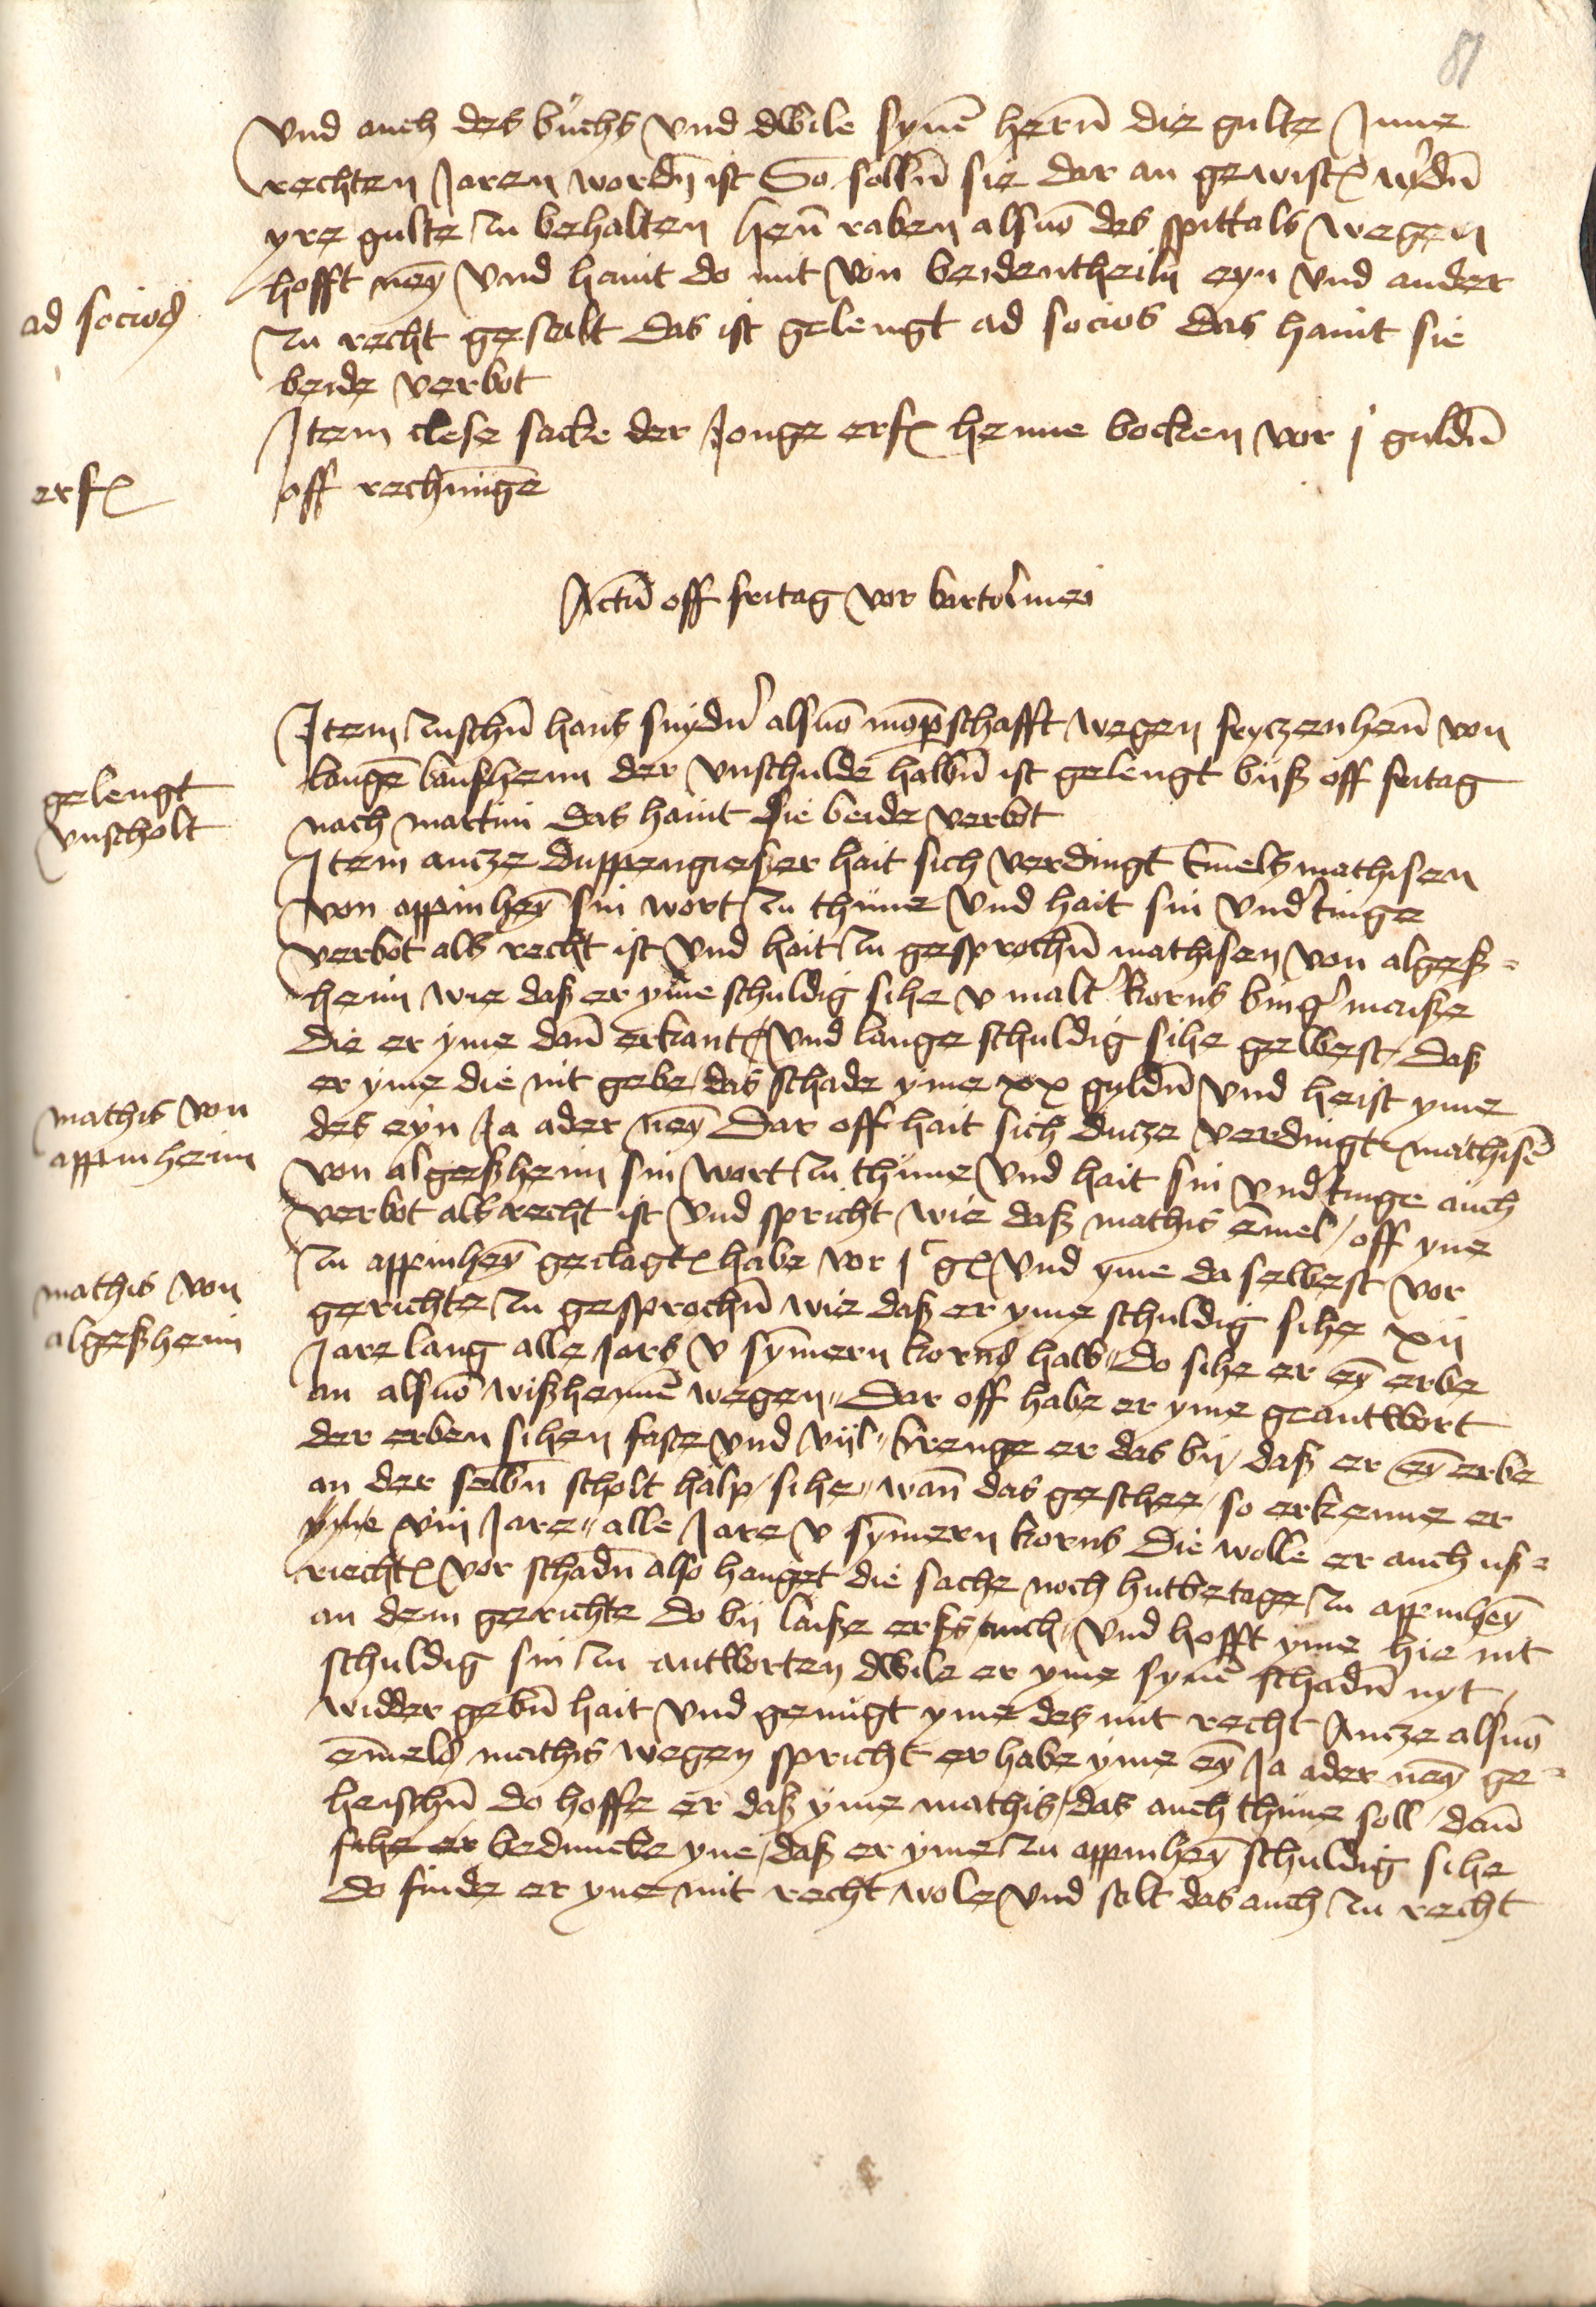 81
vnd auch des buchs vnd dwile synē hern̄ die gulte Inne
rechten Jaren wordn̄ ist So solln̄ sie dar an gewist w'dn̄
yre gulte zu behalten hen̄ raben alsuō des spittals wegen
hofft neȳ vnd hant do mit von beidentheiln eyn vnd ander
ad socios
zu recht gesalt das ist gelengt ad socios das hant sie
beide verbot
Item clese sacke der Jonge erf henne bocken vor j guldn̄
erf
off rechnunge
Actū off fritag vor bartolmei
Item zuschn̄ hans snyd' alsuō mōpschafft wegen fryczenhen̄ von
langē lanshem der vnschulde halbn̄ ist gelengt bijß off fritag
gelengt
vnscholt
nach martini das hant sie beide verbot
Item ancze duppengießer hait sich verdingt Emels mathisen
von appinheȳ sin wort zu thune vnd hait sin vnd'tinge
verbot als recht ist vnd hait zu gesprochn̄ mathisen von algeß=
heim wie daß er yme schuldig sihe v malt' korns bing' maiße
die er yme dan̄ erkant vnd lange schuldig sihe gewest daß
er yme die nit gebe das schade yme xx guldn̄ vnd heist yme
mathis von
appinheim
des eyn Ja ader neȳ Dar off hait sich ducze verdingt mathisē
von algeßheim sin wort zu thune vnd hait sin vnd'tinge auch
verbot als recht ist vnd spricht wie daß mathis emel off yne
zu appinheȳ geclagt habe vor jc g vnd yme da selbest vor
mathis von
algeßheim
gerichte zu gesprochn̄ wie daß er yme schuldig sihe xij
Jare lang alle Jars v sȳmern korns halb Do sihe er eȳ erbe
an alsuō wißhennē wegen Dar off habe er yme geantwort
der erben sihen faste vnd vijl brenge er das bij daß er eȳ erbe
an der selbn̄ scholt halp sihe wan̄ das geschee so erkenne er
yme viij Jare alle Jare v sȳmern korns die wolle er auch uß=
riecht vor schadn̄ also hanget die sache noch hutbetage zu appinheȳ
an dem gerichte do bij laiße erß auch vnd hofft yme hie nit
schuldig sin zu antworten dwile er yme synē schadn̄ nyt
widder gebn̄ hait vnd genugt yme des mit recht Ancze alsuō
emels mathis wegen spricht er habe yme eȳ Ja ader neȳ ge=
heischn̄ do hoffe er daß yme mathis das auch thune soll dan̄
sihe er beduncke yne daß er yme zu appinheȳ schuldig sihe
do finde er yne mit recht wole vnd salt das auch zu recht